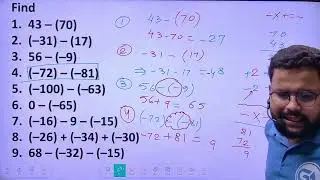 Find
1. 43 – (70)
2. (–31) – (17)
3. 56 – (–9)
4. (–72) – (–81)
5. (–100) – (–63)
6. 0 – (–65)
7. (–16) – 9 – (–15)
8. (–26) + (–34) + (–30)
9. 68 – (–32) – (–15)
① 43 – (70)
43 - 70 = -27
②
-31 - (17)
⇒ -31 - 17 = -48
③ 56 - (-9)
56 + 9 = 65
④
-72 + 81 = 9
70
43
81
72
9